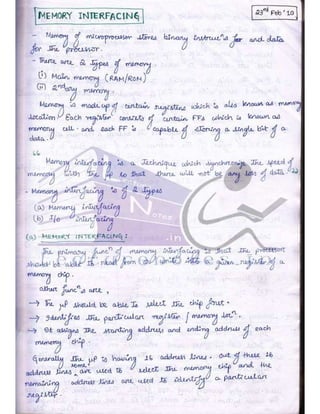 MEMORY INTERFACING
23rd Feb '10
- Memory of microprocessor stores binary instruc^n s for and data
for the processor.
- There are 2 types of memory.
(i) Main memory (RAM/ROM)
(ii) 2ndary memory.
Memory is made up of certain registers which is also known as memory
location. Each register consists of certain FFs which is known as
memory cell and each FF is capable of storing a single bit of a
data.
Memory interfacing is a technique which synchronize the speed of
memory with the μp so that there will not be any loss of data.
- Memory interfacing is of 2 types
(a) Memory interfacing
(b) I/O interfacing
(a) MEMORY INTERFACING :
The primary func^n of memory interfacing is that the processor
should be able to read from and write into a given register of a
memory chip.
other func^n s are,
→ The μp should be able to select the chip first.
→ Identifies the particular register / memory loc^n.
→ It assigns the starting address and ending address of each
memory chip.
Generally the μp is having 16 address lines. out of these 16
address lines some are used to select the memory chip and the
remaining address lines are used to identify a particular
register.